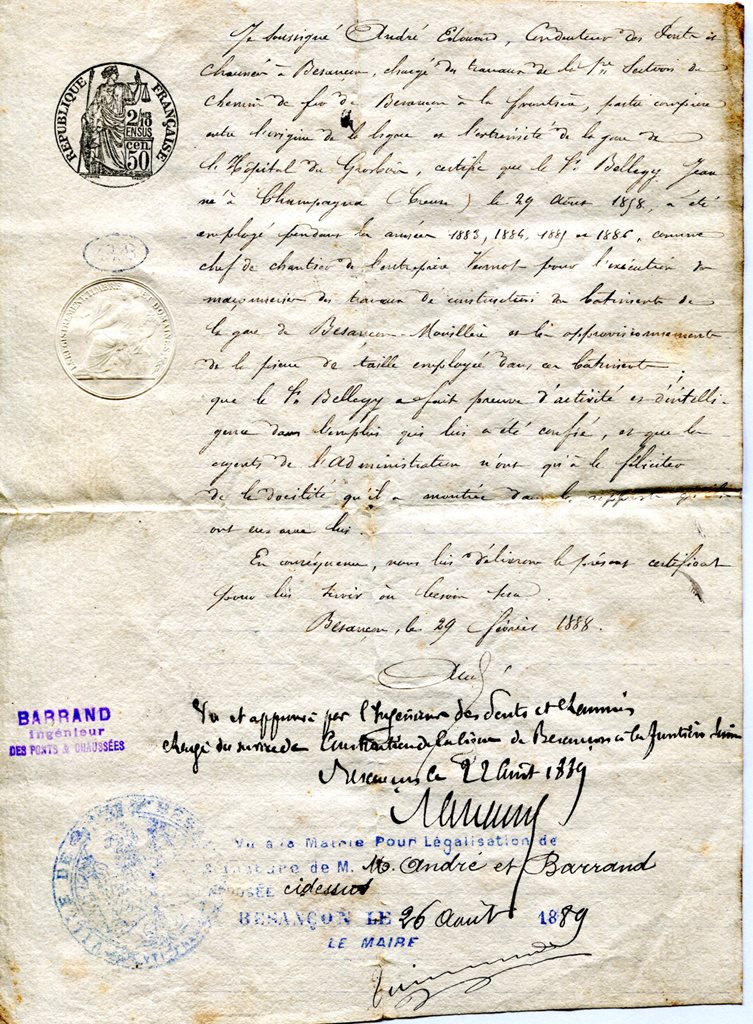 Je soussigné André Edouard, Conducteur des Ponts et
chaussées à Besançon, chargé des travaux de la 1re Section du
Chemin de fer de Besançon à la frontière, partie comprise
entre l'origine de la ligne et l'extrémité de la gare de
l'Hôpital du Grosbois, certifie que le Sr Bellegy Jean
né à Champagna (Creuse) le 29 Août 1858, a été
employé pendant les années 1883, 1884, 1885 et 1886, comme
chef de chantier de l'entreprise pour l'exécution des
maçonneries des travaux de construction des bâtiments de
la gare de Besançon-Mouillère et les approvisionnements
de la pierre de taille employée dans ces bâtiments;
que le Sr Bellegy a fait preuve d'activité et d'intelli-
gence dans l'emploi qui lui a été confié, et que les
agents de l'administration n'ont qu'à le féliciter
de la docilité qu'il a montrée dans les rapports qu'ils
ont eus avec lui.
En conséquence, nous lui délivrons le présent certificat
pour lui servir où besoin sera.
Besançon, le 29 février 1888.
André
RÉPUBLIQUE FRANÇAISE
2/10
EN SUS
50 cen
BARRAND
Ingénieur
DES PONTS & CHAUSSÉES
Vu et approuvé par l'Ingénieur des Ponts et Chaussées
chargé du service de Construction de la ligne de Besançon à la frontière
Besançon le 22 Août 1889
Vu à la Mairie Pour Légalisation de
signature de M. M. André et Barrand
APPOSÉE cidessus
BESANÇON LE 26 Août 1889
LE MAIRE
VILLE DE BESANÇON